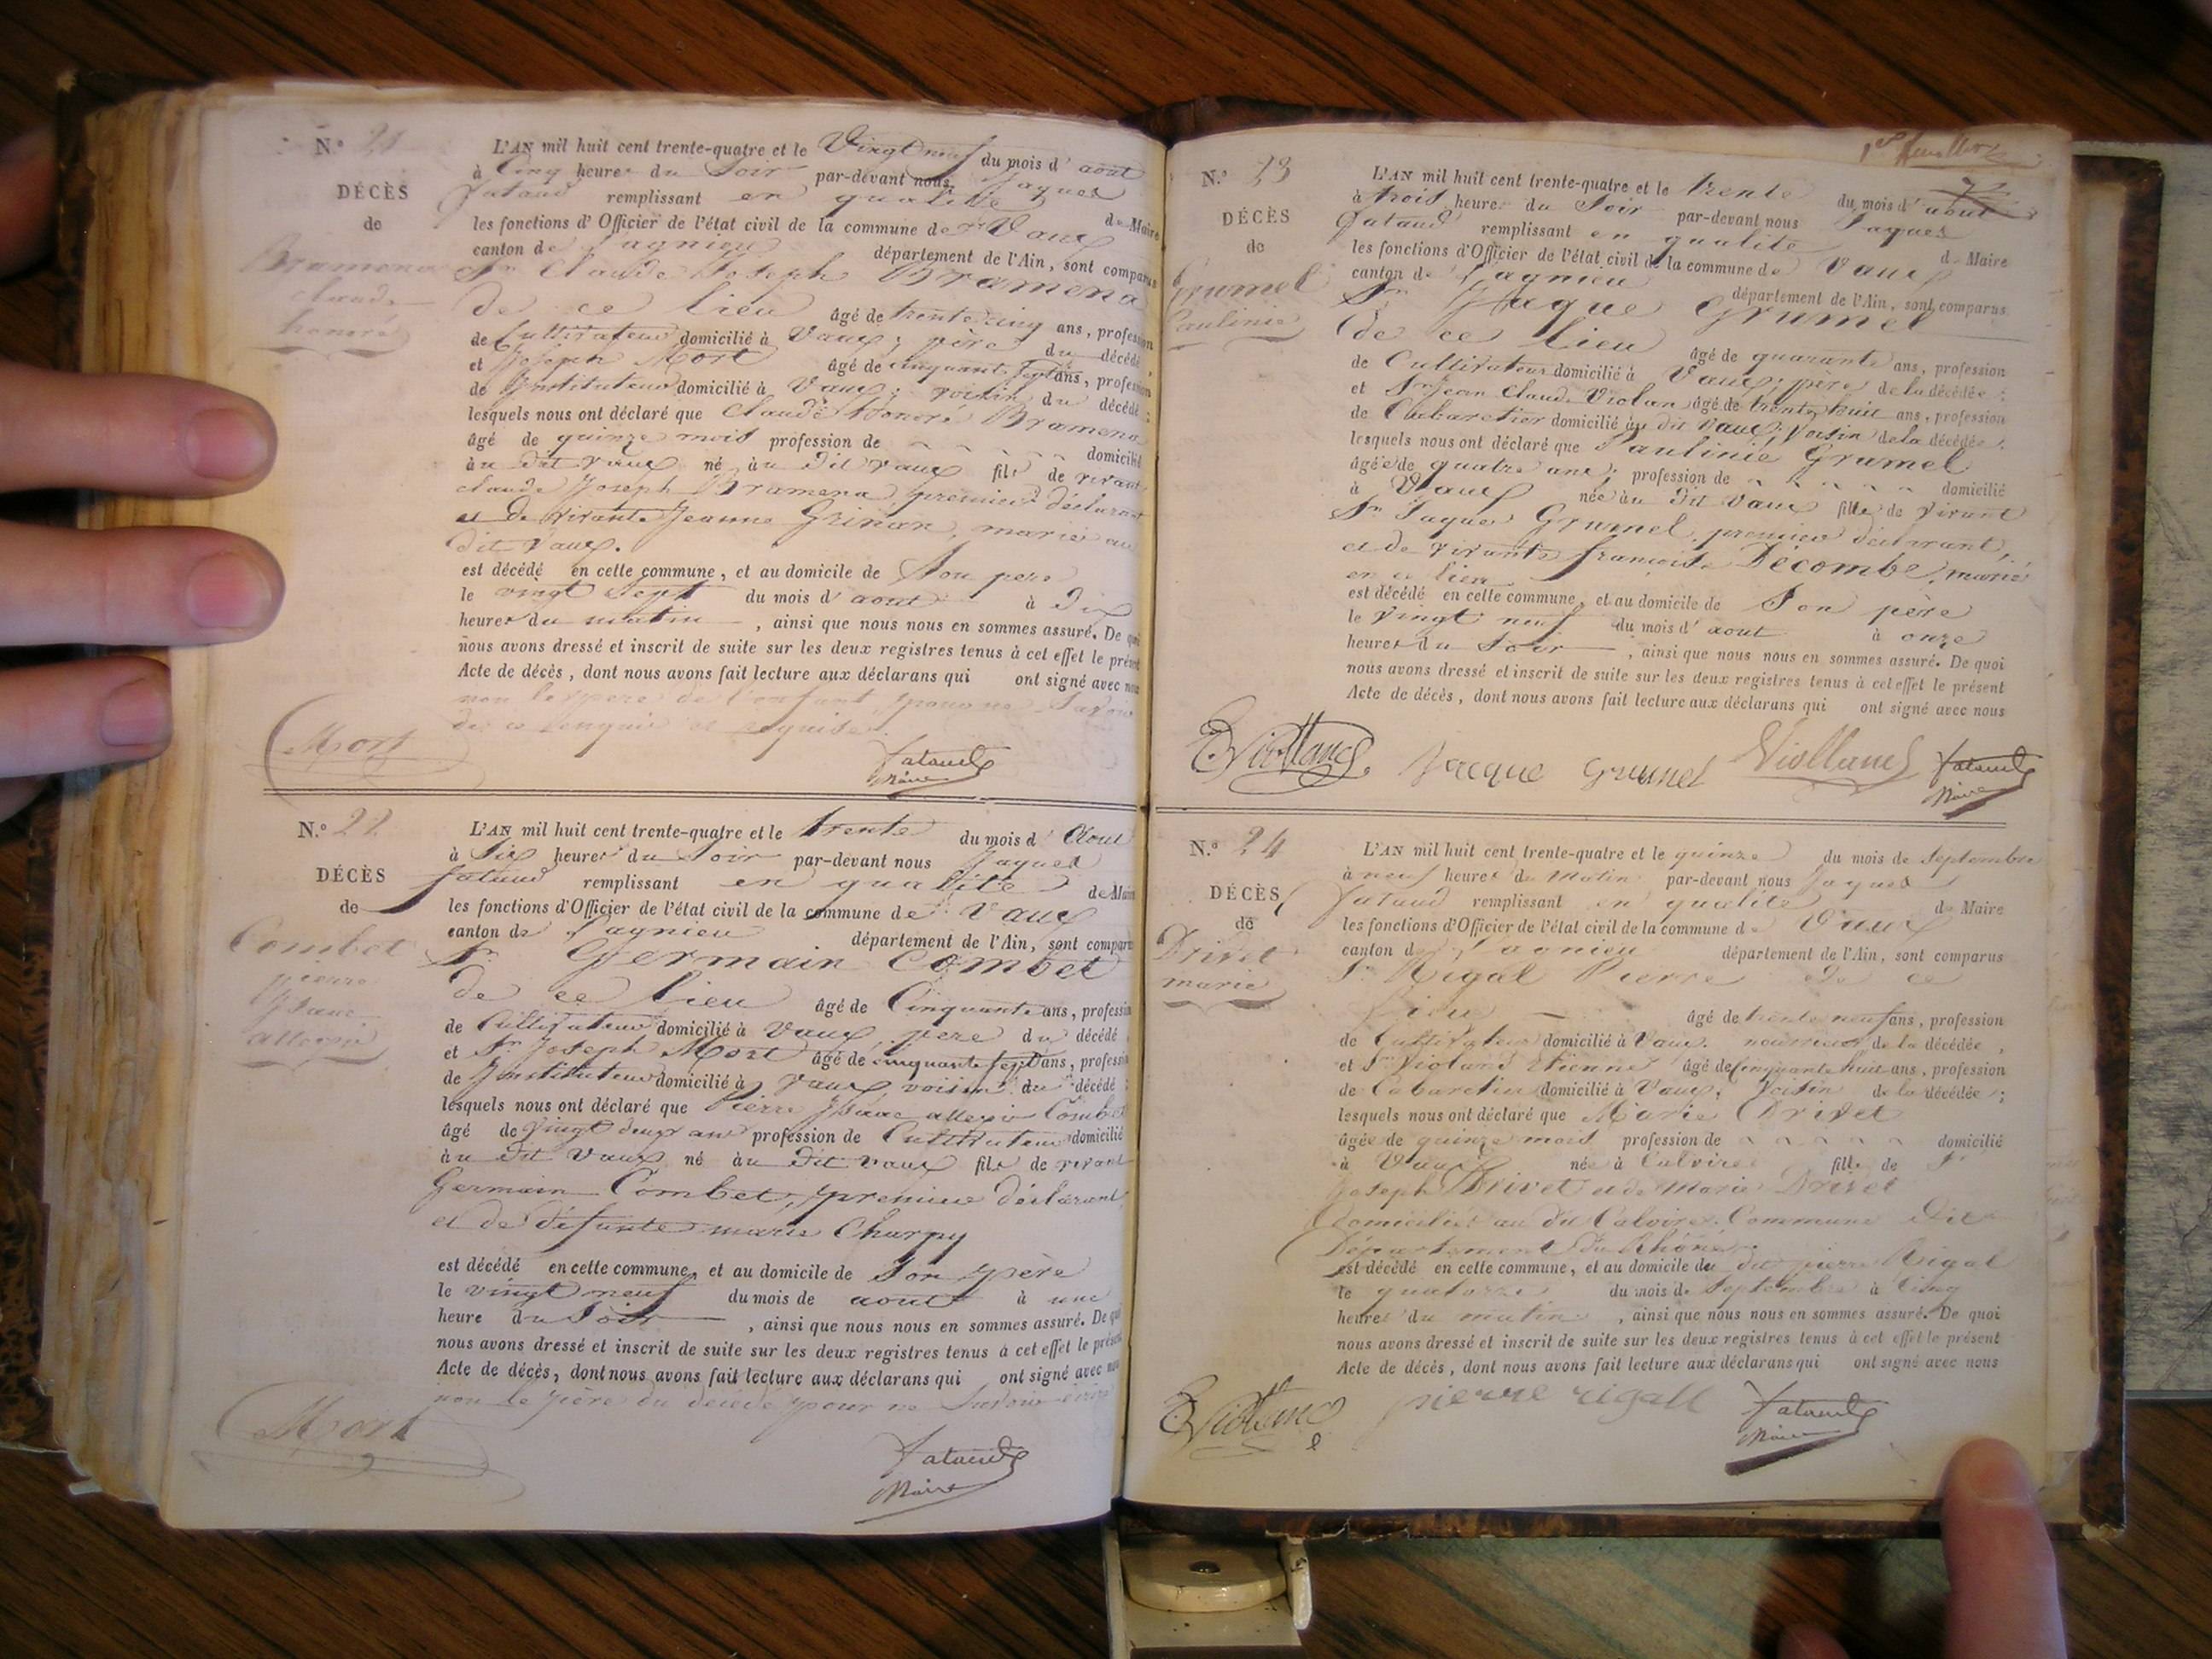 N.º 21
DÉCÈS
de
Bramena
claude
honoré
L'AN mil huit cent trente-quatre et le Vingt neuf du mois d'aout
à Cinq heures du Soir par-devant nous, Jaques
fataud remplissant en qualité de Maire
les fonctions d'Officier de l'état civil de la commune de Vaux
canton de Lagnieu département de l'Ain, sont comparus
Sr. Claude Joseph Bramena
de ce lieu âgé de trente cinq ans, profession
de Cultivateur domicilié à Vaux; père du décédé,
et Joseph Mort âgé de cinquante sept ans, profession
de Instituteur domicilié à Vaux; voisin du décédé;
lesquels nous ont déclaré que Claude Honoré Bramena
âgé de quinze mois profession de domicilié
au dit vaux né au dit vaux fils de vivant
claude Joseph Bramena, premier déclarant
et de vivante Jeanne, mariés au
dit Vaux.
est décédé en cette commune, et au domicile de Son pere
le vingt sept du mois d'aout à Dix
heures du matin, ainsi que nous nous en sommes assuré. De quoi
nous avons dressé et inscrit de suite sur les deux registres tenus à cet effet le présent
Acte de décès, dont nous avons fait lecture aux déclarans qui ont signé avec nous
non le pere de l'enfant, pour ne Savoir
de ce enquis et requis.
Mort
fataud
Maire
N.º 22
DÉCÈS
de
Combet
pierre
Isaac
allexis
L'AN mil huit cent trente-quatre et le trente du mois d'Aout
à Six heures du Soir par-devant nous Jaques
fataud remplissant en qualité de Maire
les fonctions d'Officier de l'état civil de la commune de Vaux
canton de Lagnieu département de l'Ain, sont comparus
Sr. Germain Combet
de ce lieu âgé de Cinquante ans, profession
de Cultivateur domicilié à Vaux, pere du décédé
et Sr. Joseph Mort âgé de cinquante sept ans, profession
de Instituteur domicilié à Vaux, voisin du décédé;
lesquels nous ont déclaré que Pierre Isaac allexis Combet
âgé de Vingt deux ans profession de Cultivateur domicilié
au dit Vaux né au dit vaux fils de vivant
Germain Combet, premier déclarant
et de défunte marie Charpy
est décédé en cette commune, et au domicile de Son père
le vingt neuf du mois de aout à une
heure du Soir, ainsi que nous nous en sommes assuré. De quoi
nous avons dressé et inscrit de suite sur les deux registres tenus à cet effet le présent
Acte de décès, dont nous avons fait lecture aux déclarans qui ont signé avec nous
non le père du décédé pour ne Savoir écrire
Mort
fataud
Maire
N.º 23
DÉCÈS
de
Grumel
Paulinie
L'AN mil huit cent trente-quatre et le trente du mois d'aout
à trois heures du Soir par-devant nous Jaques
fataud remplissant en qualité de Maire
les fonctions d'Officier de l'état civil de la commune de Vaux
canton de Lagnieu département de l'Ain, sont comparus
Sr. Jaque Grumel
de ce lieu âgé de quarante ans, profession
de Cultivateur domicilié à Vaux; père de la décédée;
et Sr Jean Claude Violan âgé de trente huit ans, profession
de Cabaretier domicilié au dit vaux; voisin de la décédée;
lesquels nous ont déclaré que Paulinie Grumel
âgée de quatre ans; profession de domicilié
à Vaux née au dit Vaux fille de vivant
Sr Jaques Grumel, premier déclarant,
et de vivante francoise Décombe, mariés
en ce lieu
est décédé en cette commune, et au domicile de Son père
le vingt neuf du mois d'aout à onze
heures du Soir, ainsi que nous nous en sommes assuré. De quoi
nous avons dressé et inscrit de suite sur les deux registres tenus à cet effet le présent
Acte de décès, dont nous avons fait lecture aux déclarans qui ont signé avec nous
E. Violland Jacque Grumel Violland fataud
Maire
N.º 24
DÉCÈS
de
Drivet
marie
L'AN mil huit cent trente-quatre et le quinze du mois de Septembre
à neuf heures du Matin par-devant nous Jaques
fataud remplissant en qualité de Maire
les fonctions d'Officier de l'état civil de la commune de Vaux
canton de Lagnieu département de l'Ain, sont comparus
Sr. Rigal Pierre de ce
Lieu âgé de trente neuf ans, profession
de Cultivateur domicilié à Vaux. nourricier de la décédée,
et Sr Violand Etienne âgé de Cinquante huit ans, profession
de Cabaretier domicilié à Vaux; Voisin de la décédée;
lesquels nous ont déclaré que Marie Drivet
âgée de quinze mois profession de domicilié
à Vaux née à Calvire fille de Sr
Joseph Drivet et de Marie Drivet
Domiciliés au dit Calvire. Commune dit
Département du Rhône.
est décédé en cette commune, et au domicile du dit pierre Rigal
le quatorze du mois de Septembre à Cinq
heures du matin, ainsi que nous nous en sommes assuré. De quoi
nous avons dressé et inscrit de suite sur les deux registres tenus à cet effet le présent
Acte de décès, dont nous avons fait lecture aux déclarans qui ont signé avec nous
E. Violland pierre rigall fataud
Maire